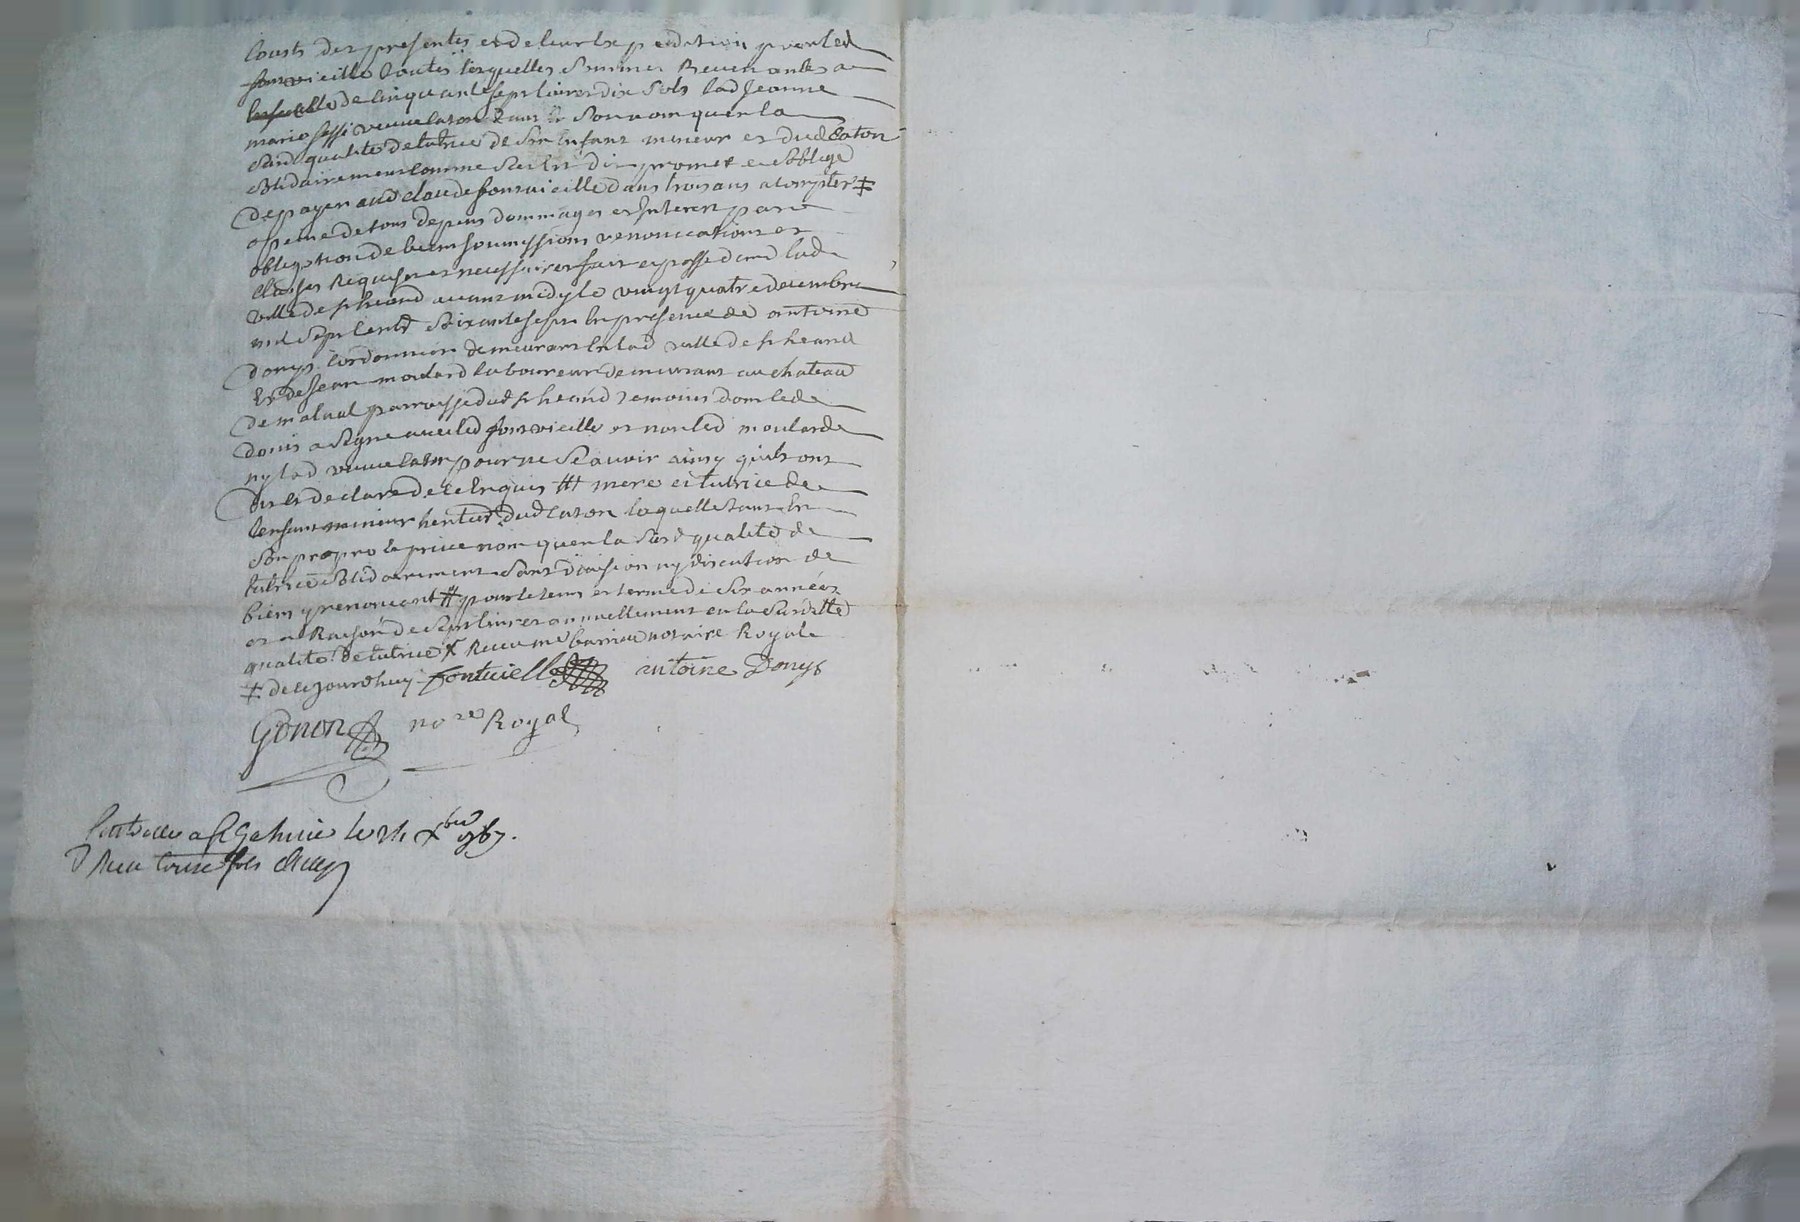 Couts des presentes et de leur Expedition par led
fontvieille toutes lesquelles Sommes Revenantes a
de Cinquante sept livres dix Sols lad Jeanne
marie veuve Caton tant En Son nom quen la
Susd qualité de tutrice de Son Enfant mineur et dud Caton
Solidairement Comme Sus Est dit promet et Soblige
de payer aud Claude fontvieille dans trois ans a Compter ‡
a peine de tous depens dommages et Interets par
obligation de biens Soumissions renonciations et
Clauses Requises et necessaires fait et passé dans lad
ville de st heand avant midy le vingt quatre decembre
mil Sept Cent Soixante sept En presence de antoine
donys Cordonnier demeurant En lad ville de st heand
Et de Jean moulard laboureur demeurant au chateau
de malval parroisse dud st heand temoins dont led
donis a Signé avec led fontvieille et non led moulard
ny lad veuve Caton pour ne Scavoir ainsy quils ont
dit et declaré de ce Enquis ⧻ mere et tutrice de
lenfant mineur heritier dud Caton laquelle tant En
Son propre et privé nom quen la Susd qualité de
tutrice Solidairement Sans division ny discution de
biens y renonceant # pour le tems et terme de Six années
et a Raison de Sept livres annuellement en la Susditte
qualité de tutrice X Recu me notaire Royal
‡ de ce Jourdhuy fontvieille antoine Donys
Gonon nore Royal
Controllé a st le Xbre 1767.
Recu Sols